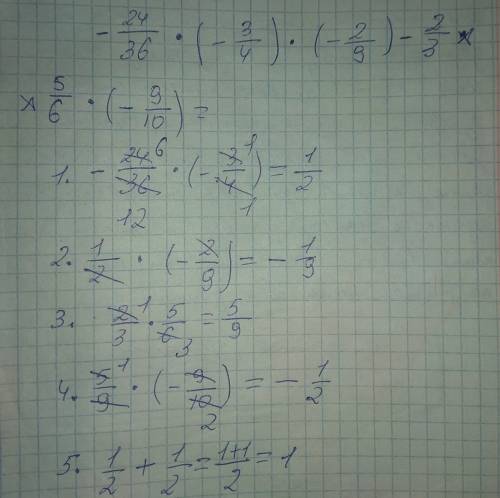 - 24/36 · (- 3/4) · (- 2/9) - 2/3 ×
× 5/6 · (- 9/10) =
1. - 24 6/36 12 · (- 3 1/4 1) = 1/2
2. 1/2 · (- 2/9) = - 1/9
3. 2 1/3 · 5/6 3 = 5/9
4. 5 1/9 · (- 9/10 2) = - 1/2
5. 1/2 + 1/2 = 1+1/2 = 1